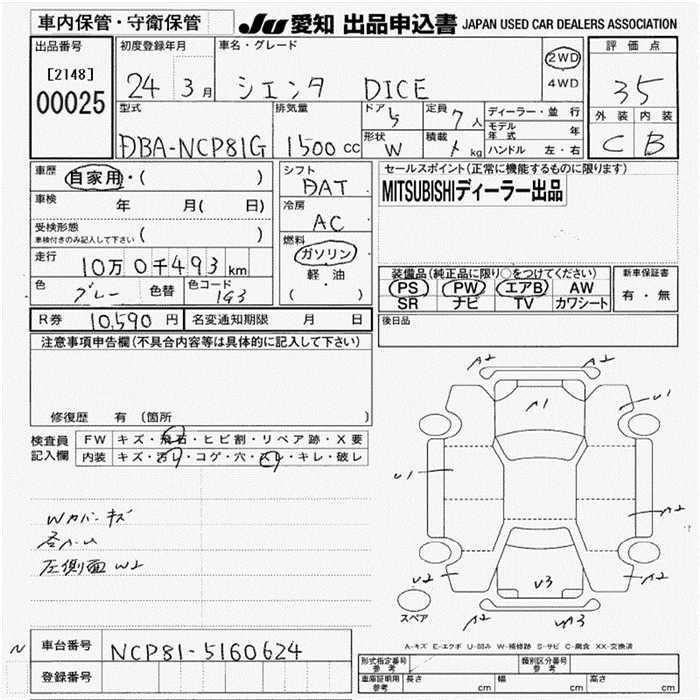 車内保管・守衛保管
JU 愛知 出品申込書 JAPAN USED CAR DEALERS ASSOCIATION
出品番号
[2148]
00025
初度登録年月
24 3月
車名・グレード
シエンタ DICE
2WD
4WD
評価点
35
外装 内装
C B
型式
DBA-NCP81G
排気量
1500 cc
ドア
5
定員
7人
形状
W
積載
kg
ディーラー・並行
モデル年式 年
ハンドル 左・右
車歴
自家用・( )
車検 年 月( 日)
受検形態
車検付きのみ記入して下さい ( )
走行
10万0千493km
色
グレー
色替
色コード
1G3
シフト
DAT
冷房
AC
燃料
ガソリン
軽・油
( ・ )
セールスポイント(正常に機能するものに限ります)
MITSUBISHIディーラー出品
装備品(純正品に限り○をつけてください)
PS PW エアB AW
SR ナビ TV カワシート
新車保証書
有・無
R券 10,590円
名変通知期限 月 日
後日品
注意事項申告欄(不具合内容等は具体的に記入して下さい)
修復歴 有 (箇所 )
検査員記入欄
FW キズ・飛石・ヒビ割・リペア跡・X要
内装 キズ・汚レ・コゲ・穴・スレ・キレ・破レ
Wカバーキズ
左側面 W2
A2 A2
A1
U1
U1
A2
U2
U3
A2
A2
スペア
A-キズ E-エクボ U-凹み W-補修跡 S-サビ C-腐食 XX-交換済
N
車台番号 NCP81-5160624
登録番号
形式指定番号 参考
類別区分番号 参考
車庫証明用 参考
長さ cm
幅 cm
高さ cm